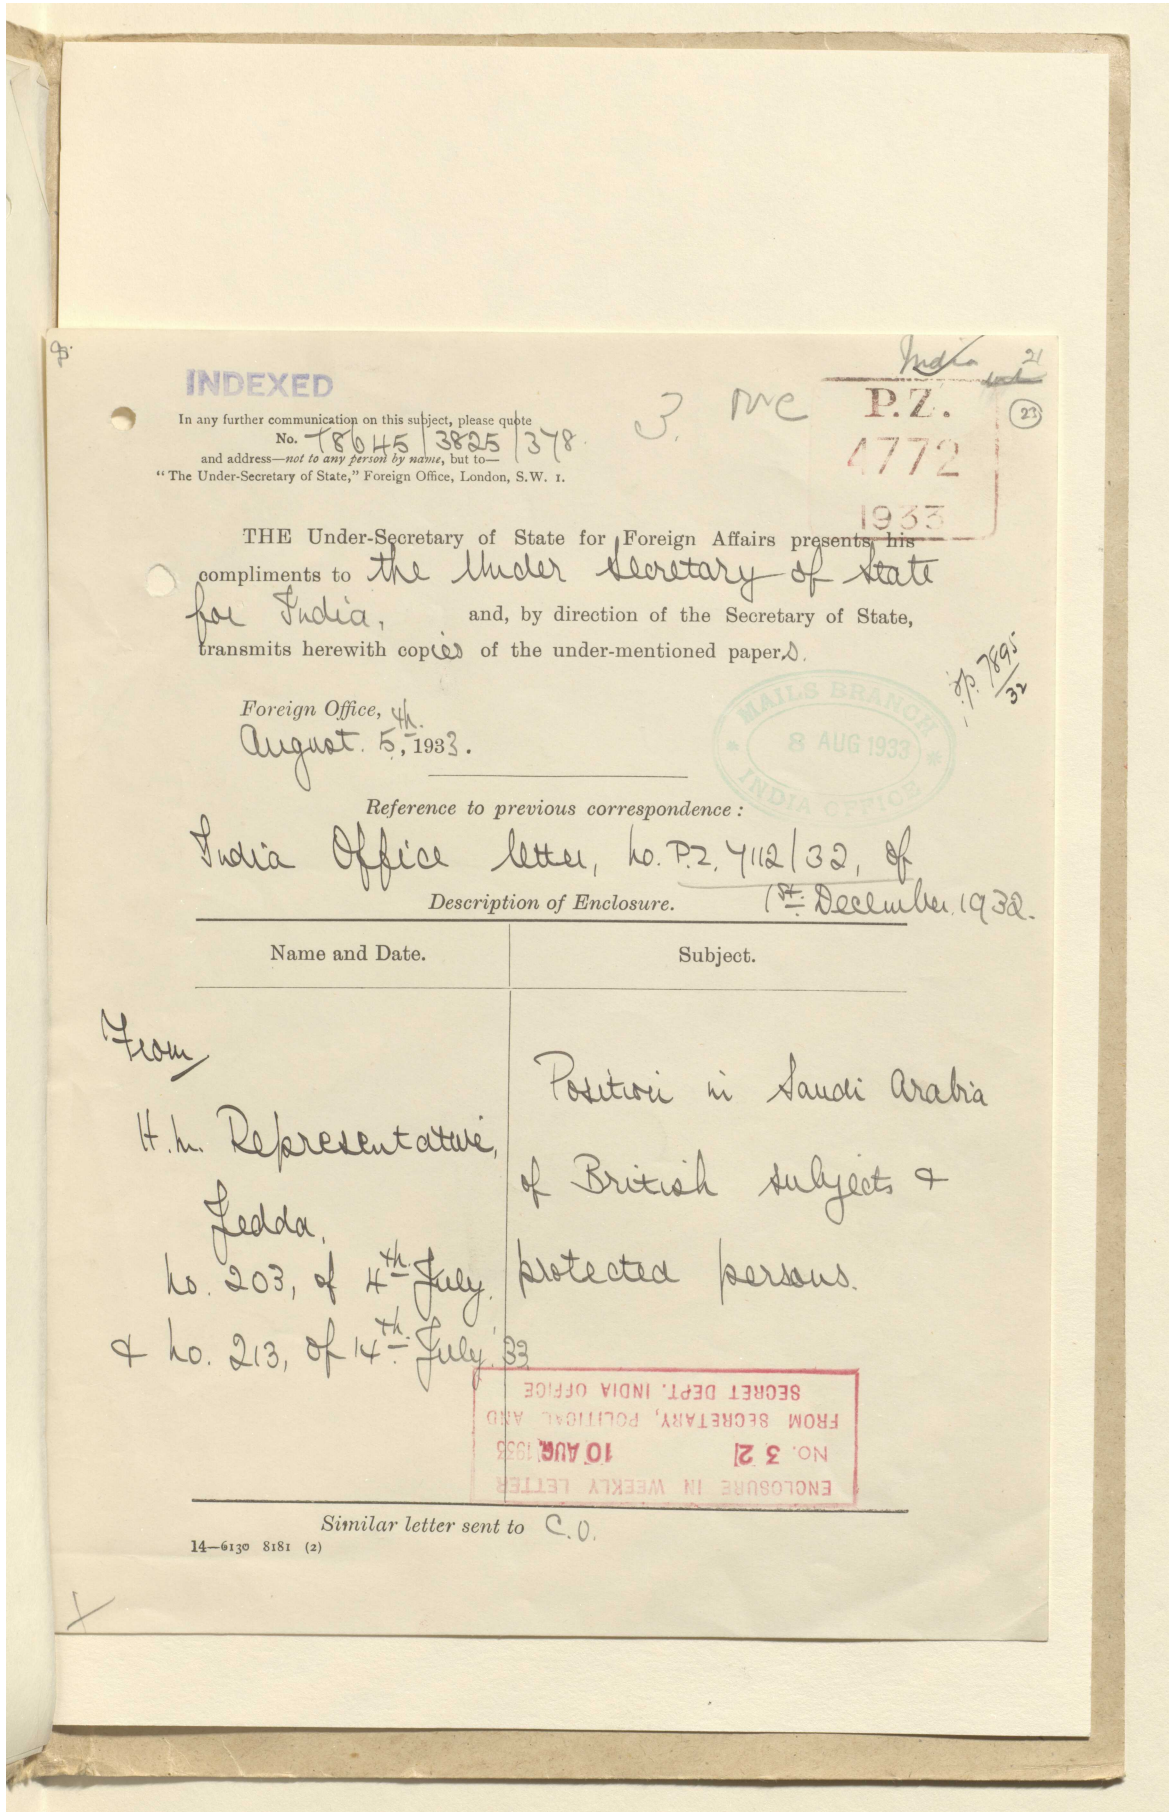 India 21
INDEXED
P.Z.
23
3.
4772
1933
In any further communication on this subject, please quote
No. T8645/3825/378.
and address—not to any person by name, but to—
"The Under-Secretary of State," Foreign Office, London, S.W. 1.
THE Under-Secretary of State for Foreign Affairs presents his
compliments to the Under Secretary of State
for India, and, by direction of the Secretary of State,
transmits herewith copies of the under-mentioned papers.
7895
32
Foreign Office,
August. 5th., 1933.
MAILS BRANCH
8 AUG 1933
INDIA OFFICE
Reference to previous correspondence :
India Office letter, No. P.Z. 7112/32, of
1st. December 1932.
Description of Enclosure.
Name and Date. Subject.
From
H.M. Representative,
Jedda.
No. 203, of 4th. July.
& No. 213, of 14th. July '33
Position in Saudi Arabia
of British subjects &
protected persons.
ENCLOSURE IN WEEKLY LETTER
NO. 32 10 AUG. 1933
FROM SECRETARY, POLITICAL AND
SECRET DEPT. INDIA OFFICE
Similar letter sent to C.O.
14—6130 8181 (2)